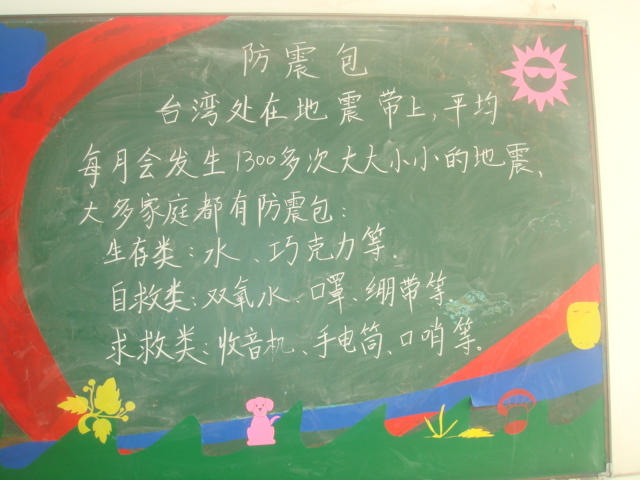 防震包
台湾处在地震带上,平均
每月会发生1300多次大大小小的地震、
大多家庭都有防震包:
生存类:水、巧克力等.
自救类:双氧水、口罩、绷带等.
求救类:收音机、手电筒、口哨等。